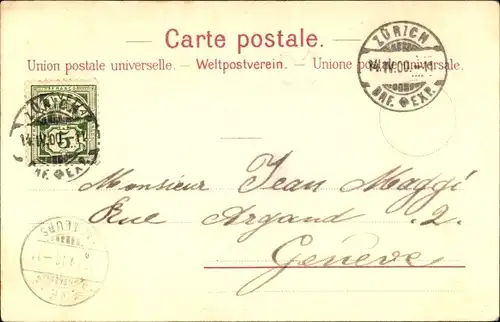 Carte postale.
Union postale universelle. – Weltpostverein. – Unione postale universale.
ZÜRICH
14.IV.00.–11
BRF. EXP.
14.IV.00
BRF. EXP.
5
Monsieur Jean Maggi
Rue Argand . 2.
Genève